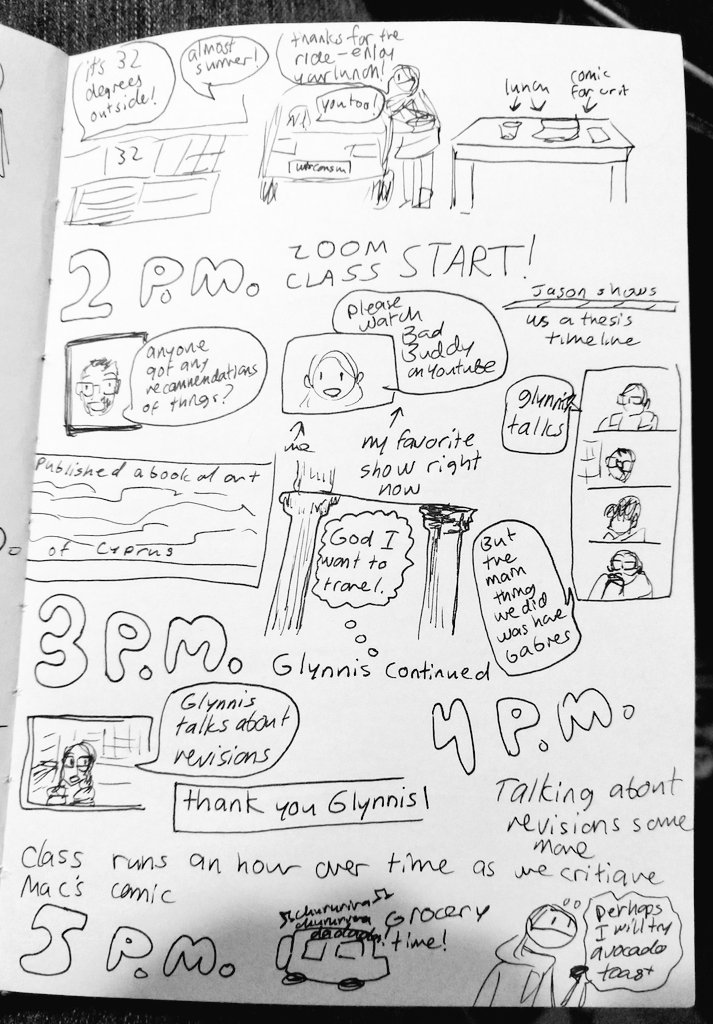 it's 32
degrees
outside!
almost
summer!
thanks for the
ride-enjoy
your lunch!
you too!
32
wisconsin
lunch
comic
for crit
2 P.M.
ZOOM
CLASS START!
Jason shows
us a thesis
timeline
anyone
got any
recommendations
of things?
please
watch
Bad
Buddy
on youtube
me
my favorite
show right
now
glynnis
talks
Published a book of art
of Cyprus
God I
want to
travel.
But
the
main
thing
we did
was have
babies
3 P.M.
Glynnis continued
Glynnis
talks about
revisions
thank you Glynnis!
4 P.M.
Talking about
revisions some
more
Class runs an hour over time as we critique
Mac's comic
5 P.M.
dadada!
Grocery
time!
perhaps
I will try
avocado
toast